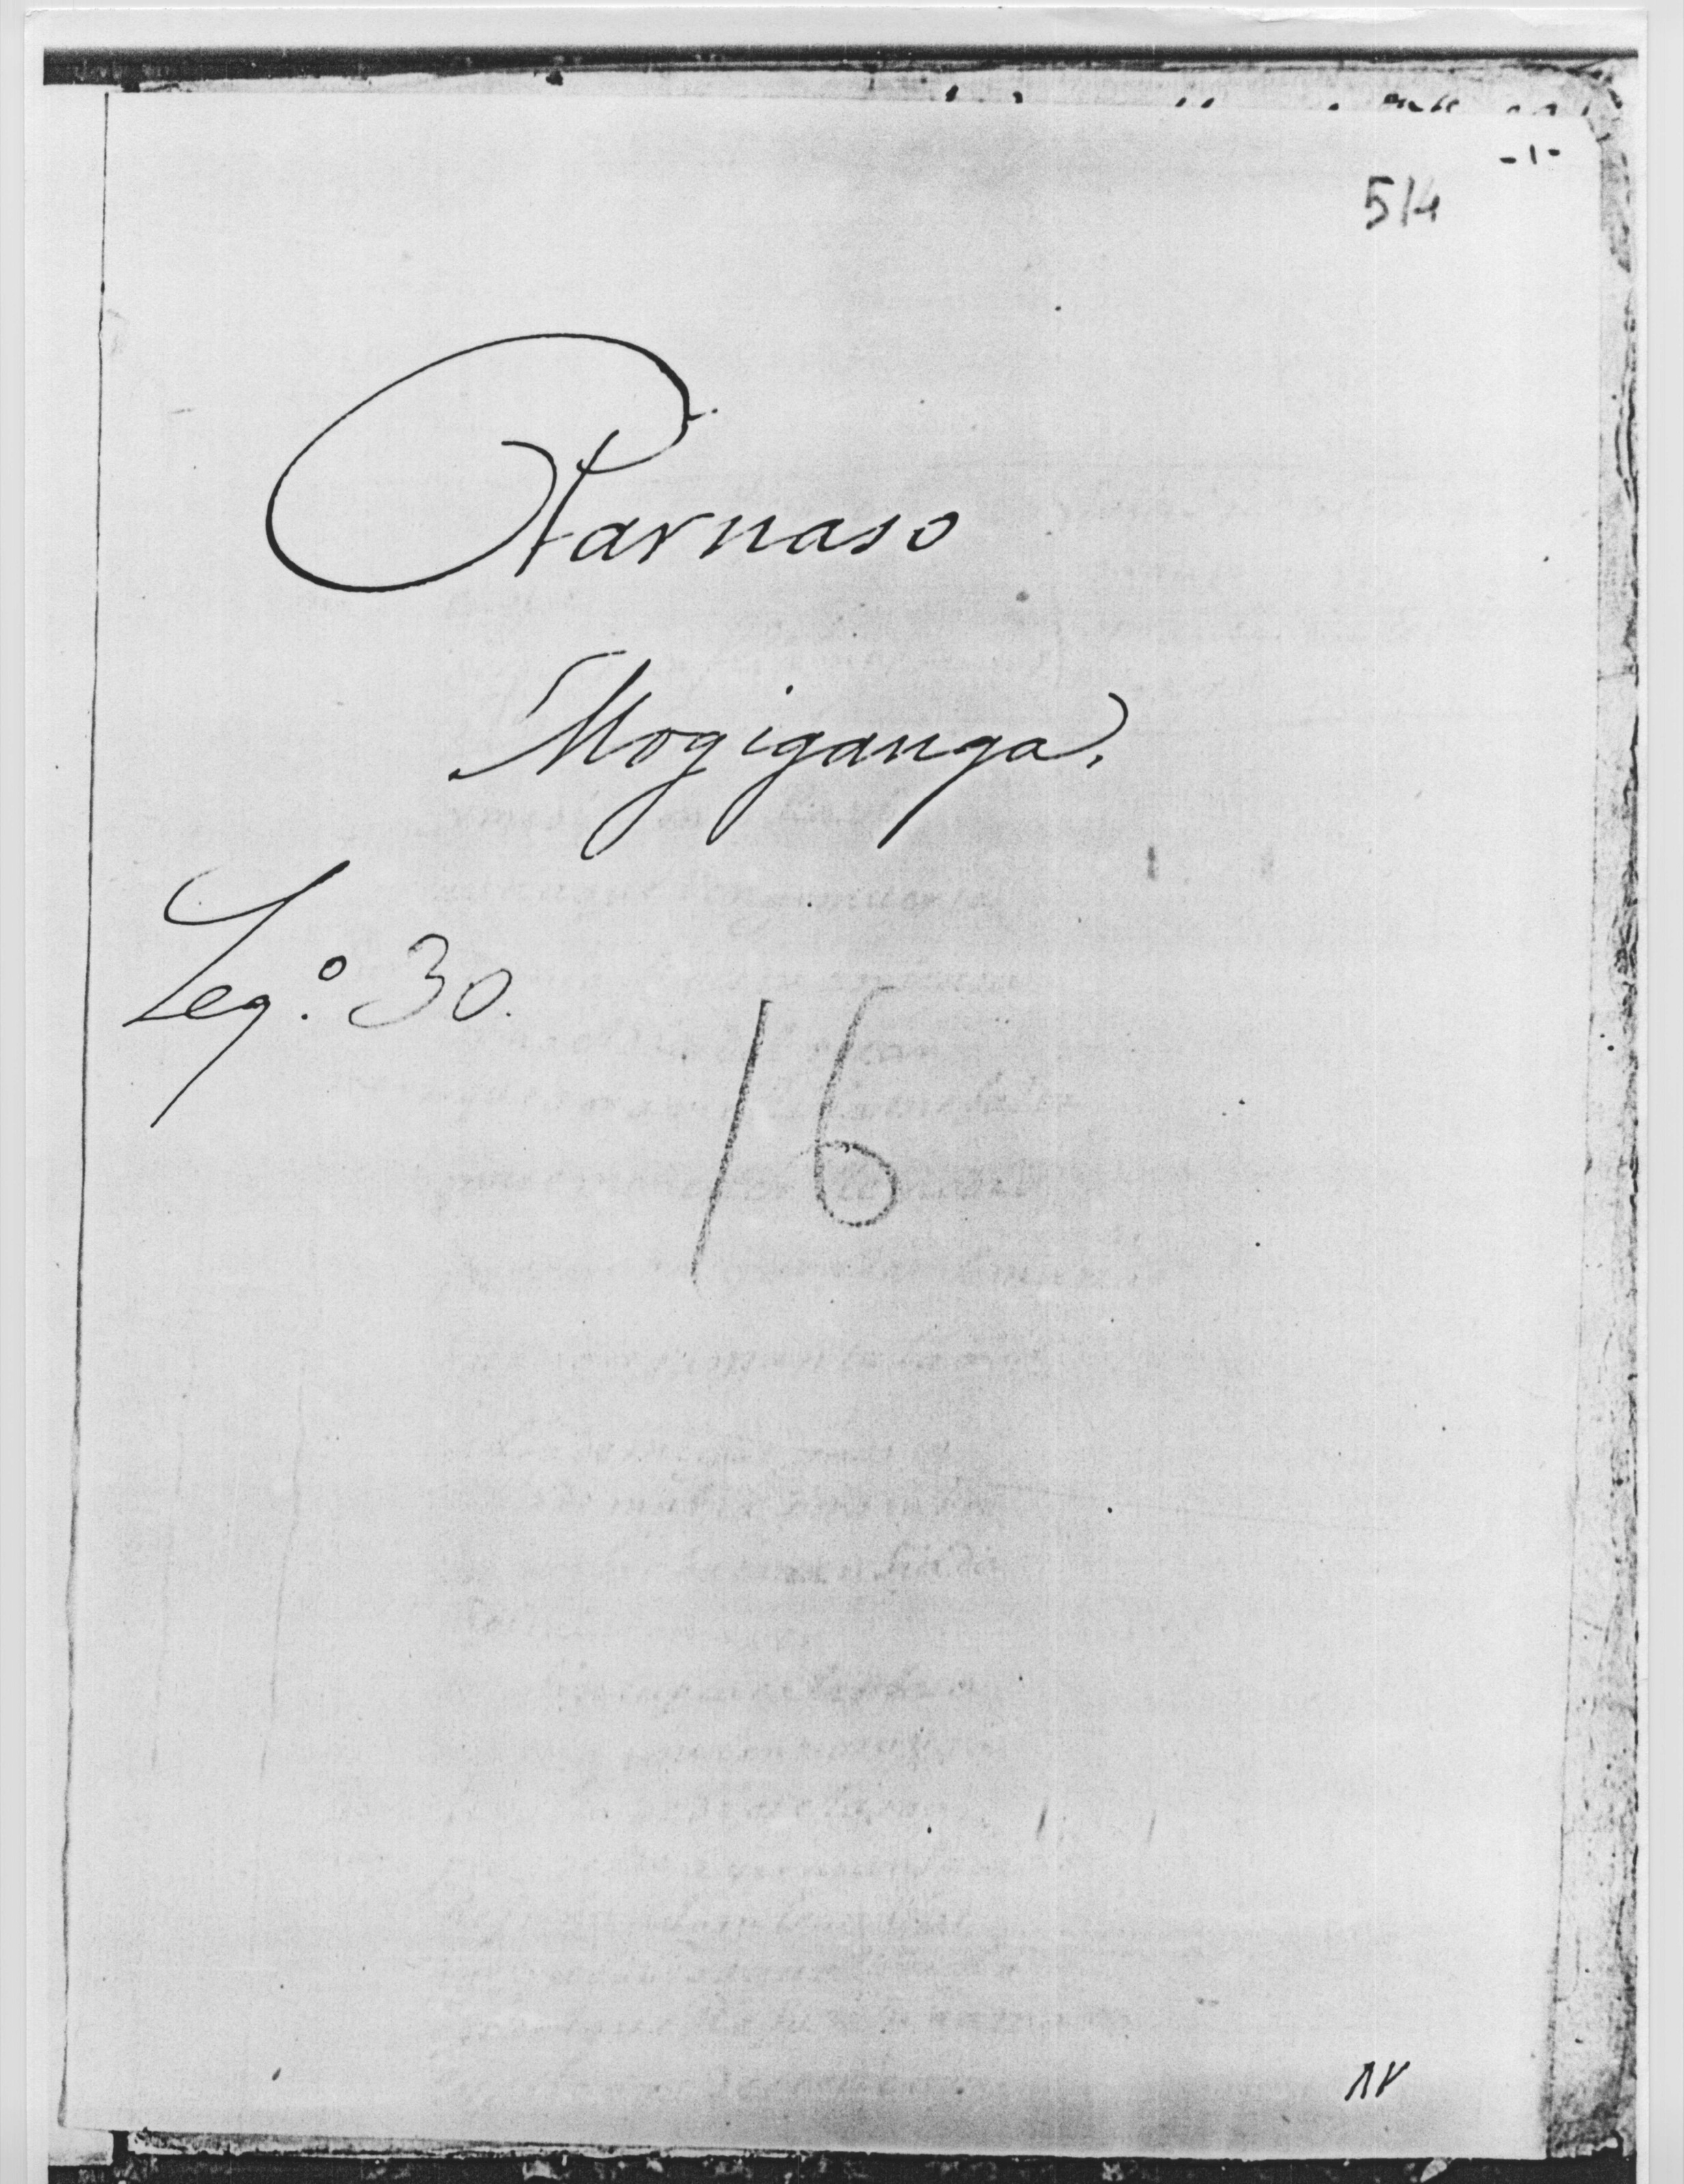 -1-
514
Parnaso
Mogiganga.
Leg.º 30.
16